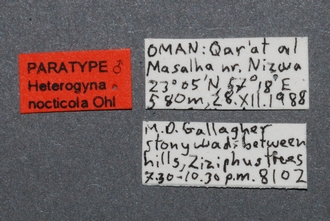 PARATYPE ♂
Heterogyna
nocticola Ohl
OMAN: Qar'at al
Masalha nr. Nizwa
23°05'N 57°18'E
580m, 28.XII.1988
M.D. Gallagher
stony wadi between
hills, Ziziphus trees
7.30-10.30 p.m. 8102